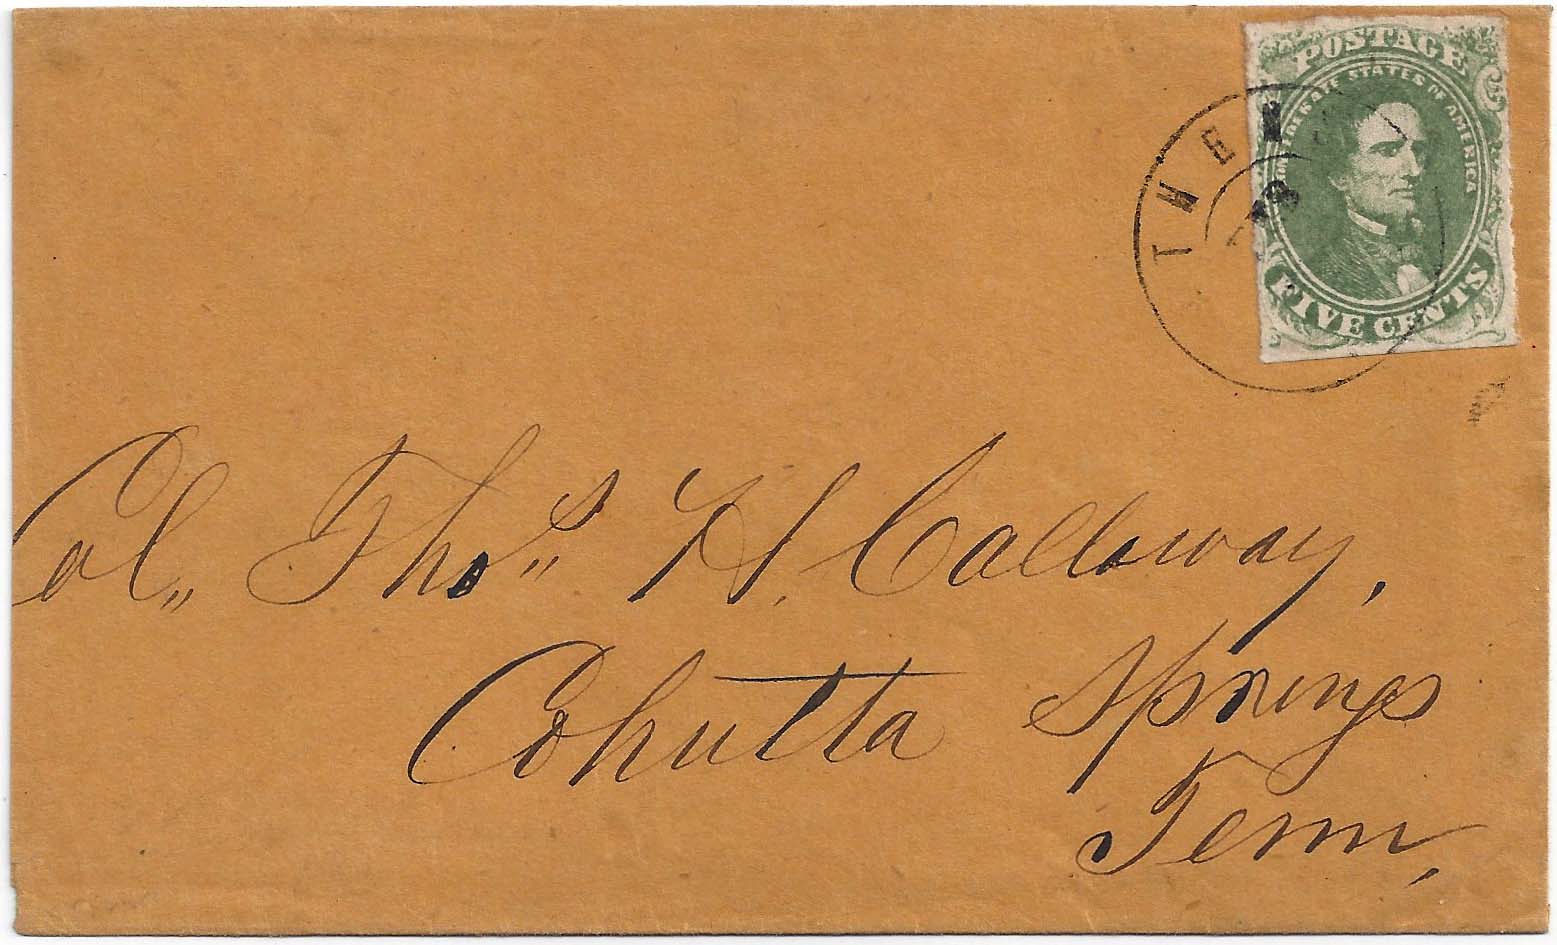 POSTAGE
CONFEDERATE STATES OF AMERICA
FIVE CENTS
THEN
Col,, Thos,, H. Callaway,
Cohutta Springs
Tenn,